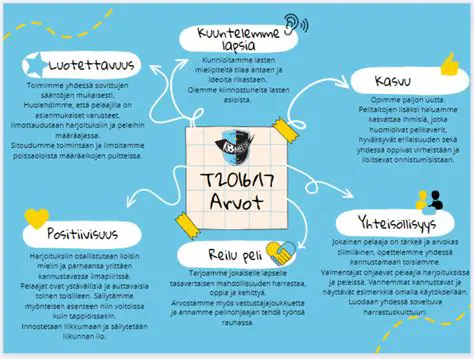 Kuuntelemme
lapsia
Kunnioitamme lasten
mielipiteitä tilaa antaen ja
ideoita rikastaen.
Olemme kiinnostuneita lasten
asioista.
Luotettavuus
Toimimme yhdessä sovittujen
sääntöjen mukaisesti.
Huolehdimme, että pelaajilla on
asianmukaiset varusteet.
Ilmottaudutaan harjoituksiin ja peleihin
määräajassa.
Sitoudumme toimintaan ja ilmoitamme
poissaoloista määräaikojen puitteissa.
Kasvu
Opimme paljon uutta.
Pelitaitojen lisäksi haluamme
kasvattaa ihmisiä, jotka
huomioivat pelikaverit,
hyväksyvät erilaisuuden sekä
yhdessä oppivat virheistään ja
iloitsevat onnistumisistaan.
T2016/17
Arvot
Positiivisuus
Harjoituksiin osallistutaan iloisin
mielin ja parhaansa yrittäen
kannustavassa ilmapiirissä.
Pelaajat ovat ystävällisiä ja auttavaisia
toinen toisilleen. Säilytämme
myönteisen asenteen niin voitoissa
kuin tappioissakin.
Innostetaan liikkumaan ja säilytetään
liikunnan ilo.
Reilu peli
Tarjoamme jokaiselle lapselle
tasavertaisen mahdollisuuden harrastaa,
oppia ja kehittyä.
Arvostamme myös vastustajajoukkuetta
ja annamme pelinohjaajan tehdä työnsä
rauhassa.
Yhteisöllisyys
Jokainen pelaaja on tärkeä ja arvokas
tiimiläinen, opettelemme yhdessä
kannustamaan toisiamme.
Valmentajat ohjaavat pelaajia harjoituksissa
ja peleissä. Vanhemmat kannustavat ja
näyttävät esimerkkiä omalla käytöksellään.
Luodaan yhdessä soveltuva
harrastuskulttuuri.